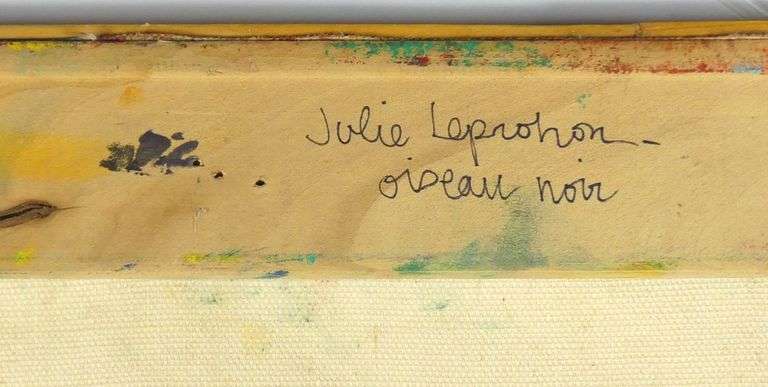 Julie Leprohon -
oiseau noir